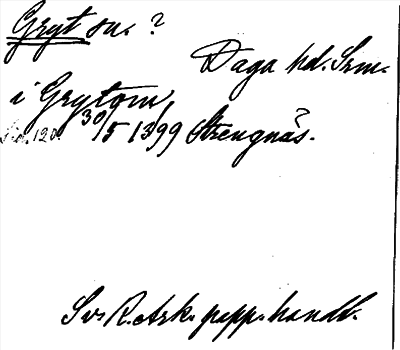 Gryt sn. ?
Daga hd. Srm.
i Grytom
30/5 1399 Strengnäs.
Sv. R. Ark. papp. handl.